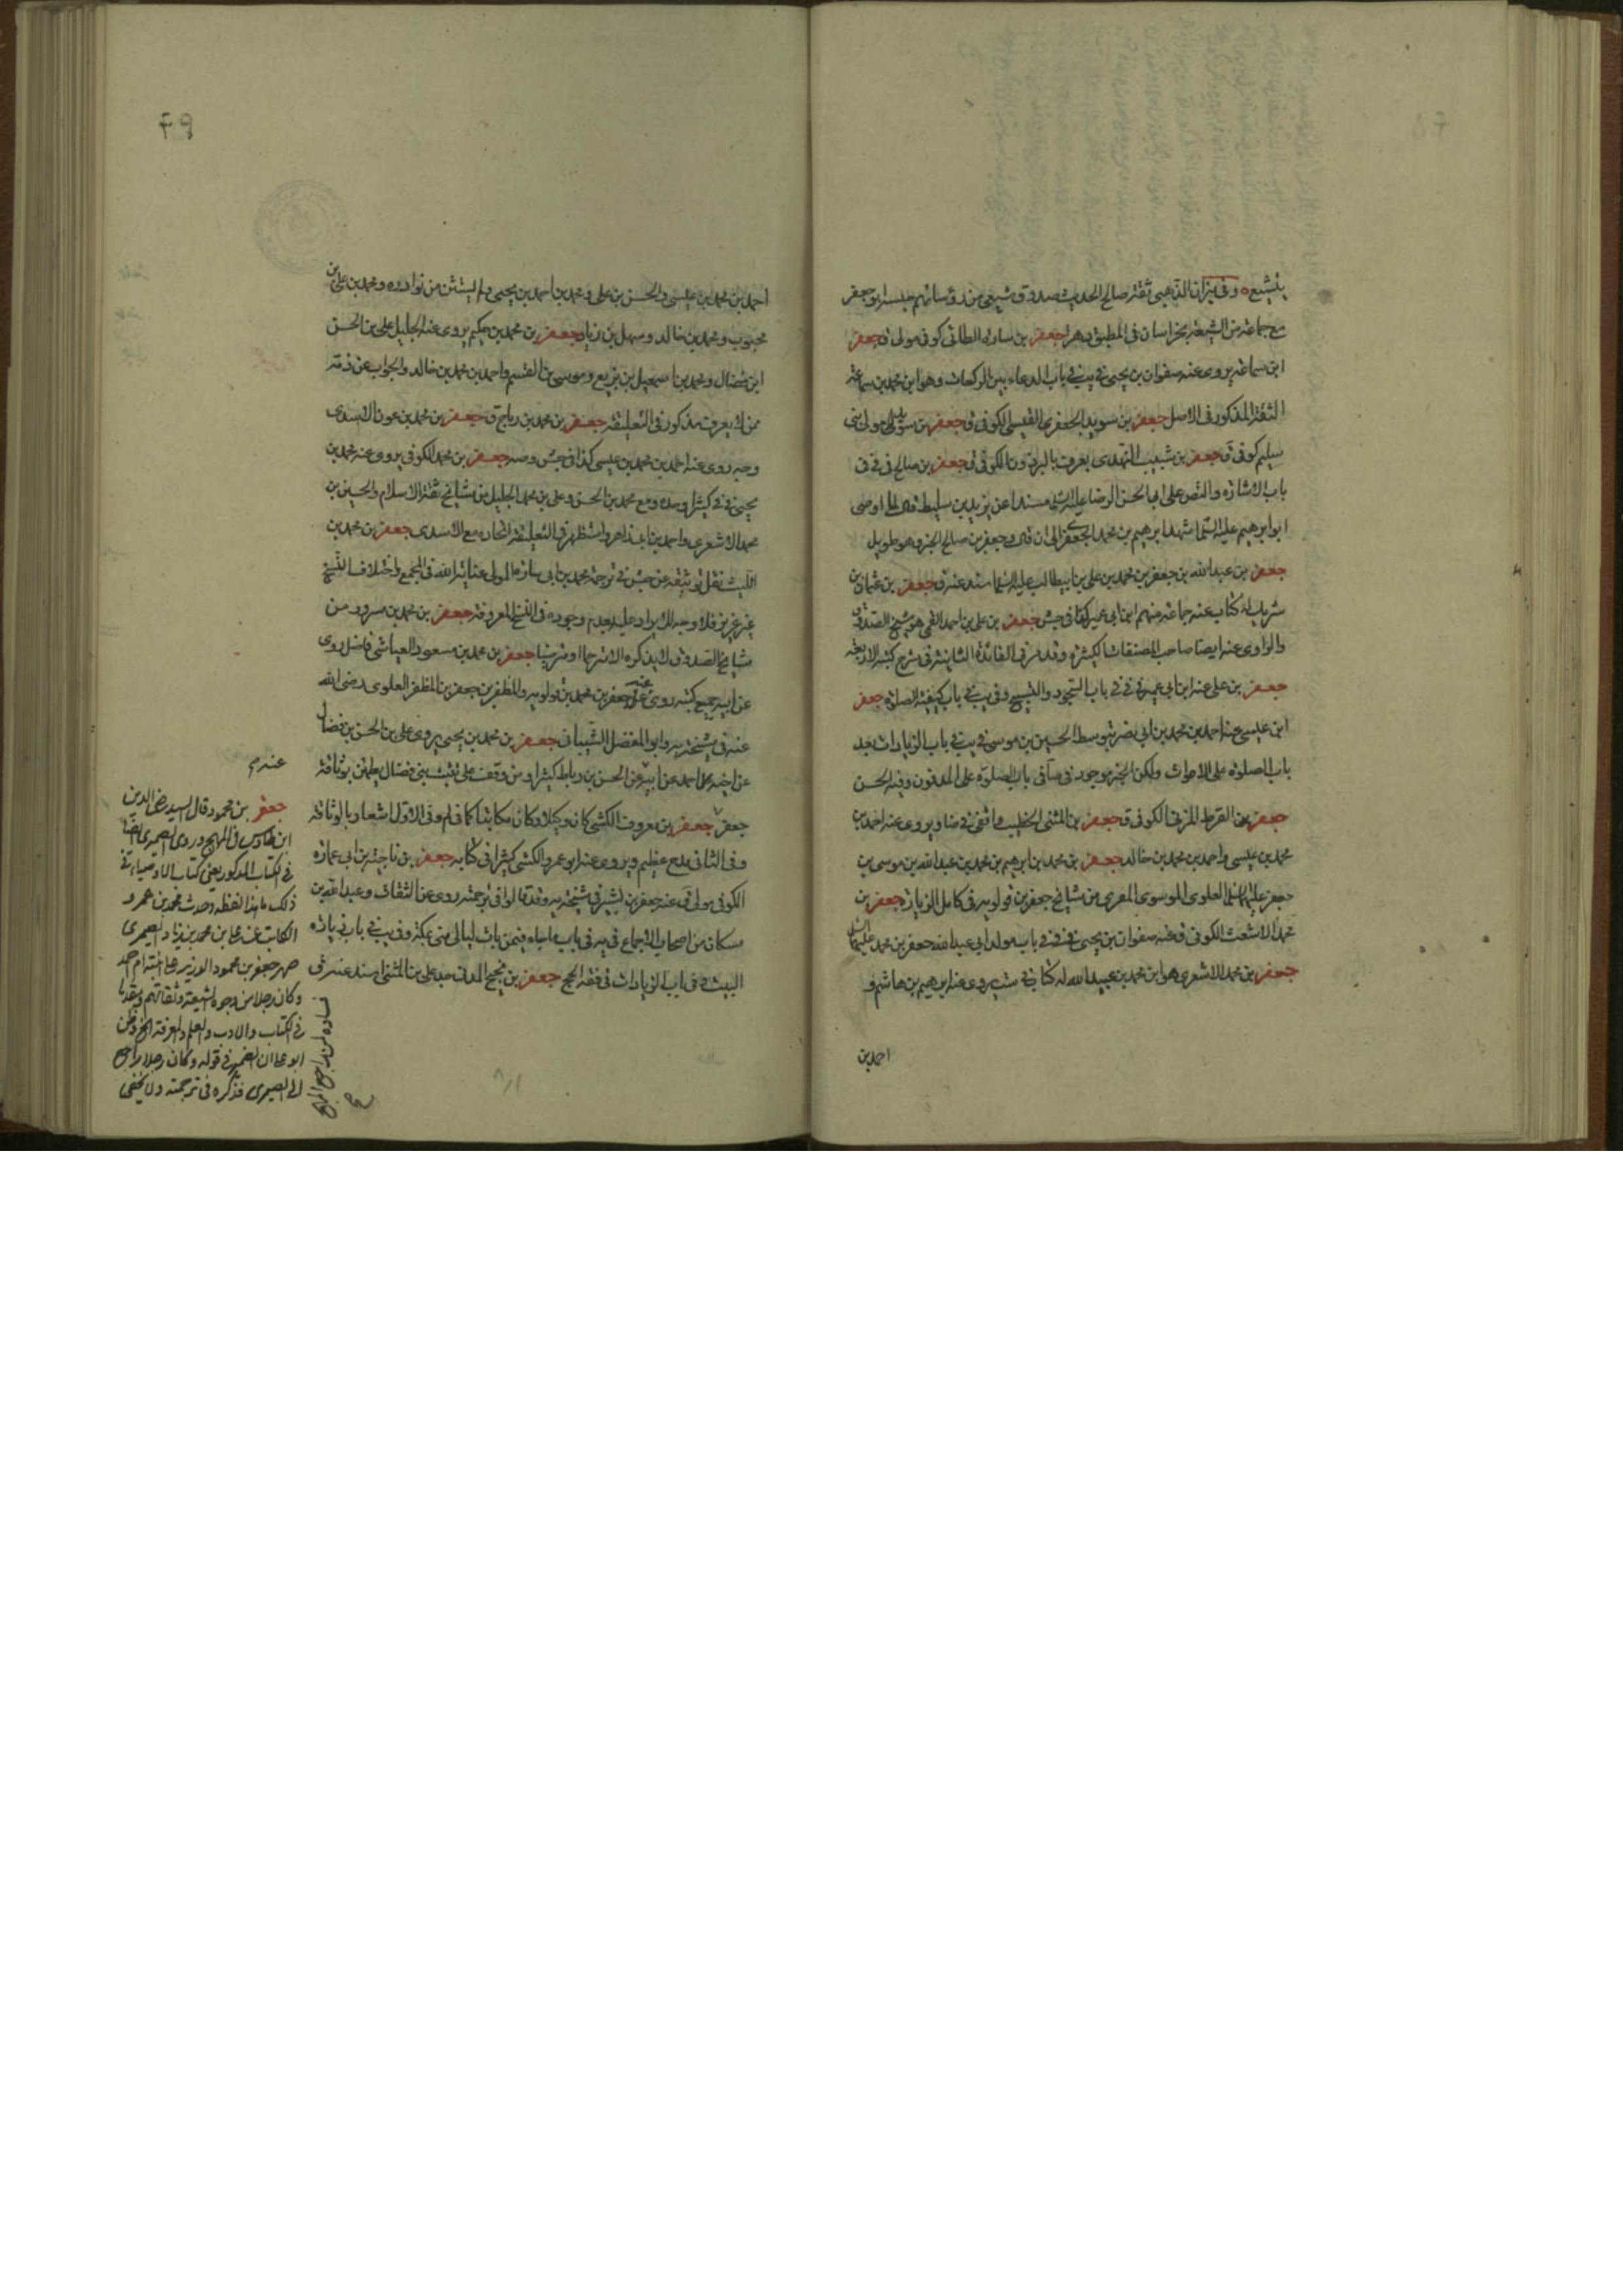 يتشيع ٥ وفى ميزان الذهبى ثقة صالح الحديث صدوق شيعى من رؤسائهم حبسه ابو جعفر
مع جماعة من الشيعة بخراسان فى المطبق دهرا جعفر بن سارة الطائى كوفى مولى ق جعفر
ابن سماعة يروى عنه صفوان بن يحيى فى يب فى باب الدعاء بين الركعات وهو ابن محمد بن سماعة
الثقة المذكور فى الاصل جعفر بن سويد الجعفرى القيسى الكوفى ق جعفر بن سويد مولى بنى
سليم كوفى ق جعفر بن شبيب النهدى يعرف بالبرذون الكوفى ق جعفر بن صالح فى فى فى
باب الاشارة والنص على ابى الحسن الرضا عليه السلم مسندا عن يزيد بن سليط قال لما اوصى
ابو ابرهيم عليه السلم اشهد ابرهيم بن محمد الجعفرى الى ان قال وجعفر بن صالح الخبر وهو طويل
جعفر بن عبد الله بن جعفر بن محمد بن على بن ابيطالب عليه السلم اسند عنه ق جعفر بن عثمان بن
شريك له كتاب عنه جماعة منهم ابن ابى عمير كذا فى جش جعفر بن على بن احمد القمى هو شيخ الصدوق
والراوى عنه ايضا صاحب المصنفات الكثيرة وقد مر فى الفائدة الثانية فى شرح كتبه الاربعة
جعفر بن على عنه ابن ابى عمير فى فى باب السجود والتسبيح وفى يب فى باب كيفية الصلوة جعفر
ابن عيسى عنه احمد بن محمد بن ابى نصر بتوسط الحسين بن موسى فى يب فى باب الزيادات بعد
باب الصلوة على الاموات ولكن الخبر موجود فى باب الصلوة على المدفون وفيه الحسن
جعفر بن القرط المزنى الكوفى ق جعفر بن المثنى الخطيب يروى عنه احمد بن
محمد بن عيسى واحمد بن محمد بن خالد جعفر بن محمد بن ابرهيم بن محمد بن عبد الله بن موسى بن
جعفر عليهما السلم العلوى الموسوى المصرى من مشايخ جعفر بن قولويه فى كامل الزيارة جعفر بن
محمد الاشعث الكوفى ق عنه صفوان بن يحيى فى فى باب مولد ابى عبد الله جعفر بن محمد عليهما السلم
جعفر بن محمد الاشعرى هو ابن محمد بن عبيد الله له كتاب فى ست يروى عنه ابرهيم بن هاشم و
احمد بن
٦٩
احمد بن محمد بن عيسى والحسن بن على ومحمد بن احمد بن يحيى ولم يستثن من نوادره ومحمد بن على بن
محبوب ومحمد بن خالد وسهل بن زياد جعفر بن محمد بن حكيم يروى عنه الجليل على بن الحسن
ابن فضال ومحمد بن اسمعيل بن بزيع وموسى بن القسم واحمد بن محمد بن خالد والجواب عن ذمه
ممن لا يعرف مذكور فى التعليقة جعفر بن محمد بن رباح ق جعفر بن محمد بن عون الاسدى
وجه روى عنه احمد بن محمد بن عيسى كذا فى جش وصه جعفر بن محمد الكوفى يروى عنه محمد بن
يحيى فى فى كثيرا وحده ومع محمد بن الحسن وعلى بن محمد الجليل من مشايخ ثقة الاسلام والحسين بن
محمد الاشعرى واحمد بن واستظهر فى التعليقة اتحاده مع الاسدى جعفر بن محمد بن
الليث نقل توثيقه عن جش فى ترجمة محمد بن ابى سارة المولى عناية الله فى المجمع واختلاف النسخ
غير عزيز فلا وجه للايراد عليه بعدم وجوده فى النسخ المعروفة جعفر بن محمد بن مسرور من
مشايخ الصدوق لا يذكره الا مترحما او مترضيا جعفر بن محمد بن مسعود العياشى فاضل روى
عن ابيه جميع كتبه روى عنه جعفر بن محمد بن قولويه والمظفر بن جعفر بن المظفر العلوى رضى الله
عنه فى مشيخة يه وابو المفضل الشيبانى جعفر بن محمد بن يحيى يروى على بن الحسن بن فضال
عن اخيه احمد عن ابيه عن الحسن بن رباط كثيرا ومن وقف على تثبت بنى فضال يطمئن بوثاقة
جعفر جعفر بن معروف الكشى كان وكيلا وكان مكاتبا كما فى لم وفى الاول اشعار بالوثاقة
وفى الثانى مدح عظيم ويروى عنه ابو عمرو الكشى كثيرا فى كتابه جعفر بن ناجية بن ابى عمارة
الكوفى مولى ق عنه جعفر بن بشير فى مشيخة يه وقد قالوا فى ترجمته روى عن الثقات وعبد الله بن
مسكان من اصحاب الاجماع فى يه فى باب ما جاء فيمن بات ليالى منى بمكة وفى يب فى باب زيارة
البيت وفى باب الزيادات فى فقه الحج جعفر بن نجيح المدنى جد على بن المثنى اسند عنه ق
عندم
جعفر بن محمود قال السيد رضى الدين
ابن طاوس فى المهج وروى الصيمرى ايضا
فى الكتاب المذكور يعنى كتاب الاوصياء فى
ذلك ما هذا لفظه وحدث محمد بن عمرو
الكاتب عن على بن محمد بن زياد الصيمرى
صهر جعفر بن محمود الوزير على ابنته ام احمد
وكان رجلا من وجوه الشيعة وثقاتهم ومقدما
فى الكتاب والادب والعلم والمعرفة الخ وظن
ابو على ان الضمير فى قوله وكان رجلا راجع
الى الصيمرى فذكره فى ترجمته ولا يخفى